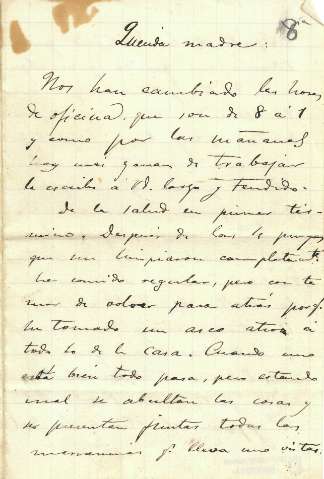 8
Querida madre:
Nos han cambiado las horas
de oficina, que son de 8 á 1
y como por las mañanas
hay mas ganas de trabajar
le escribo á Vd. largo y tendido.
De la salud en primer tér-
mino. Despues de las purgas
que me limpiaron completamte
he comido regular, pero con te
mor de volver para atrás porq.
he tomado un asco atroz á
todo lo de la casa. Cuando uno
está bien todo pasa, pero estando
mal se abultan las cosas y
se presentan juntas todas las
q. lleva uno vistas.